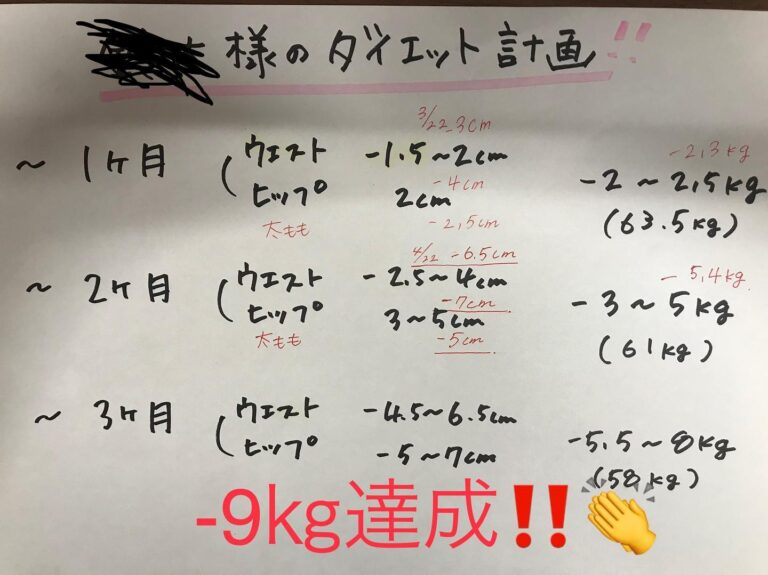 様のダイエット計画!!
3/22 -3cm
~ 1ヶ月 ( ウエスト -1.5~2cm
-2,3kg
ヒップ 2cm -4cm -2~2,5kg
太もも -2,5cm (63.5kg)
4/22 -6.5cm
~ 2ヶ月 ( ウエスト -2.5~4cm -5,4kg
ヒップ 3~5cm -7cm -3~5kg
太もも -5cm (61kg)
~ 3ヶ月 ( ウエスト -4.5~6.5cm
ヒップ -5~7cm -5.5~8kg
(58kg)
-9kg達成‼️👏